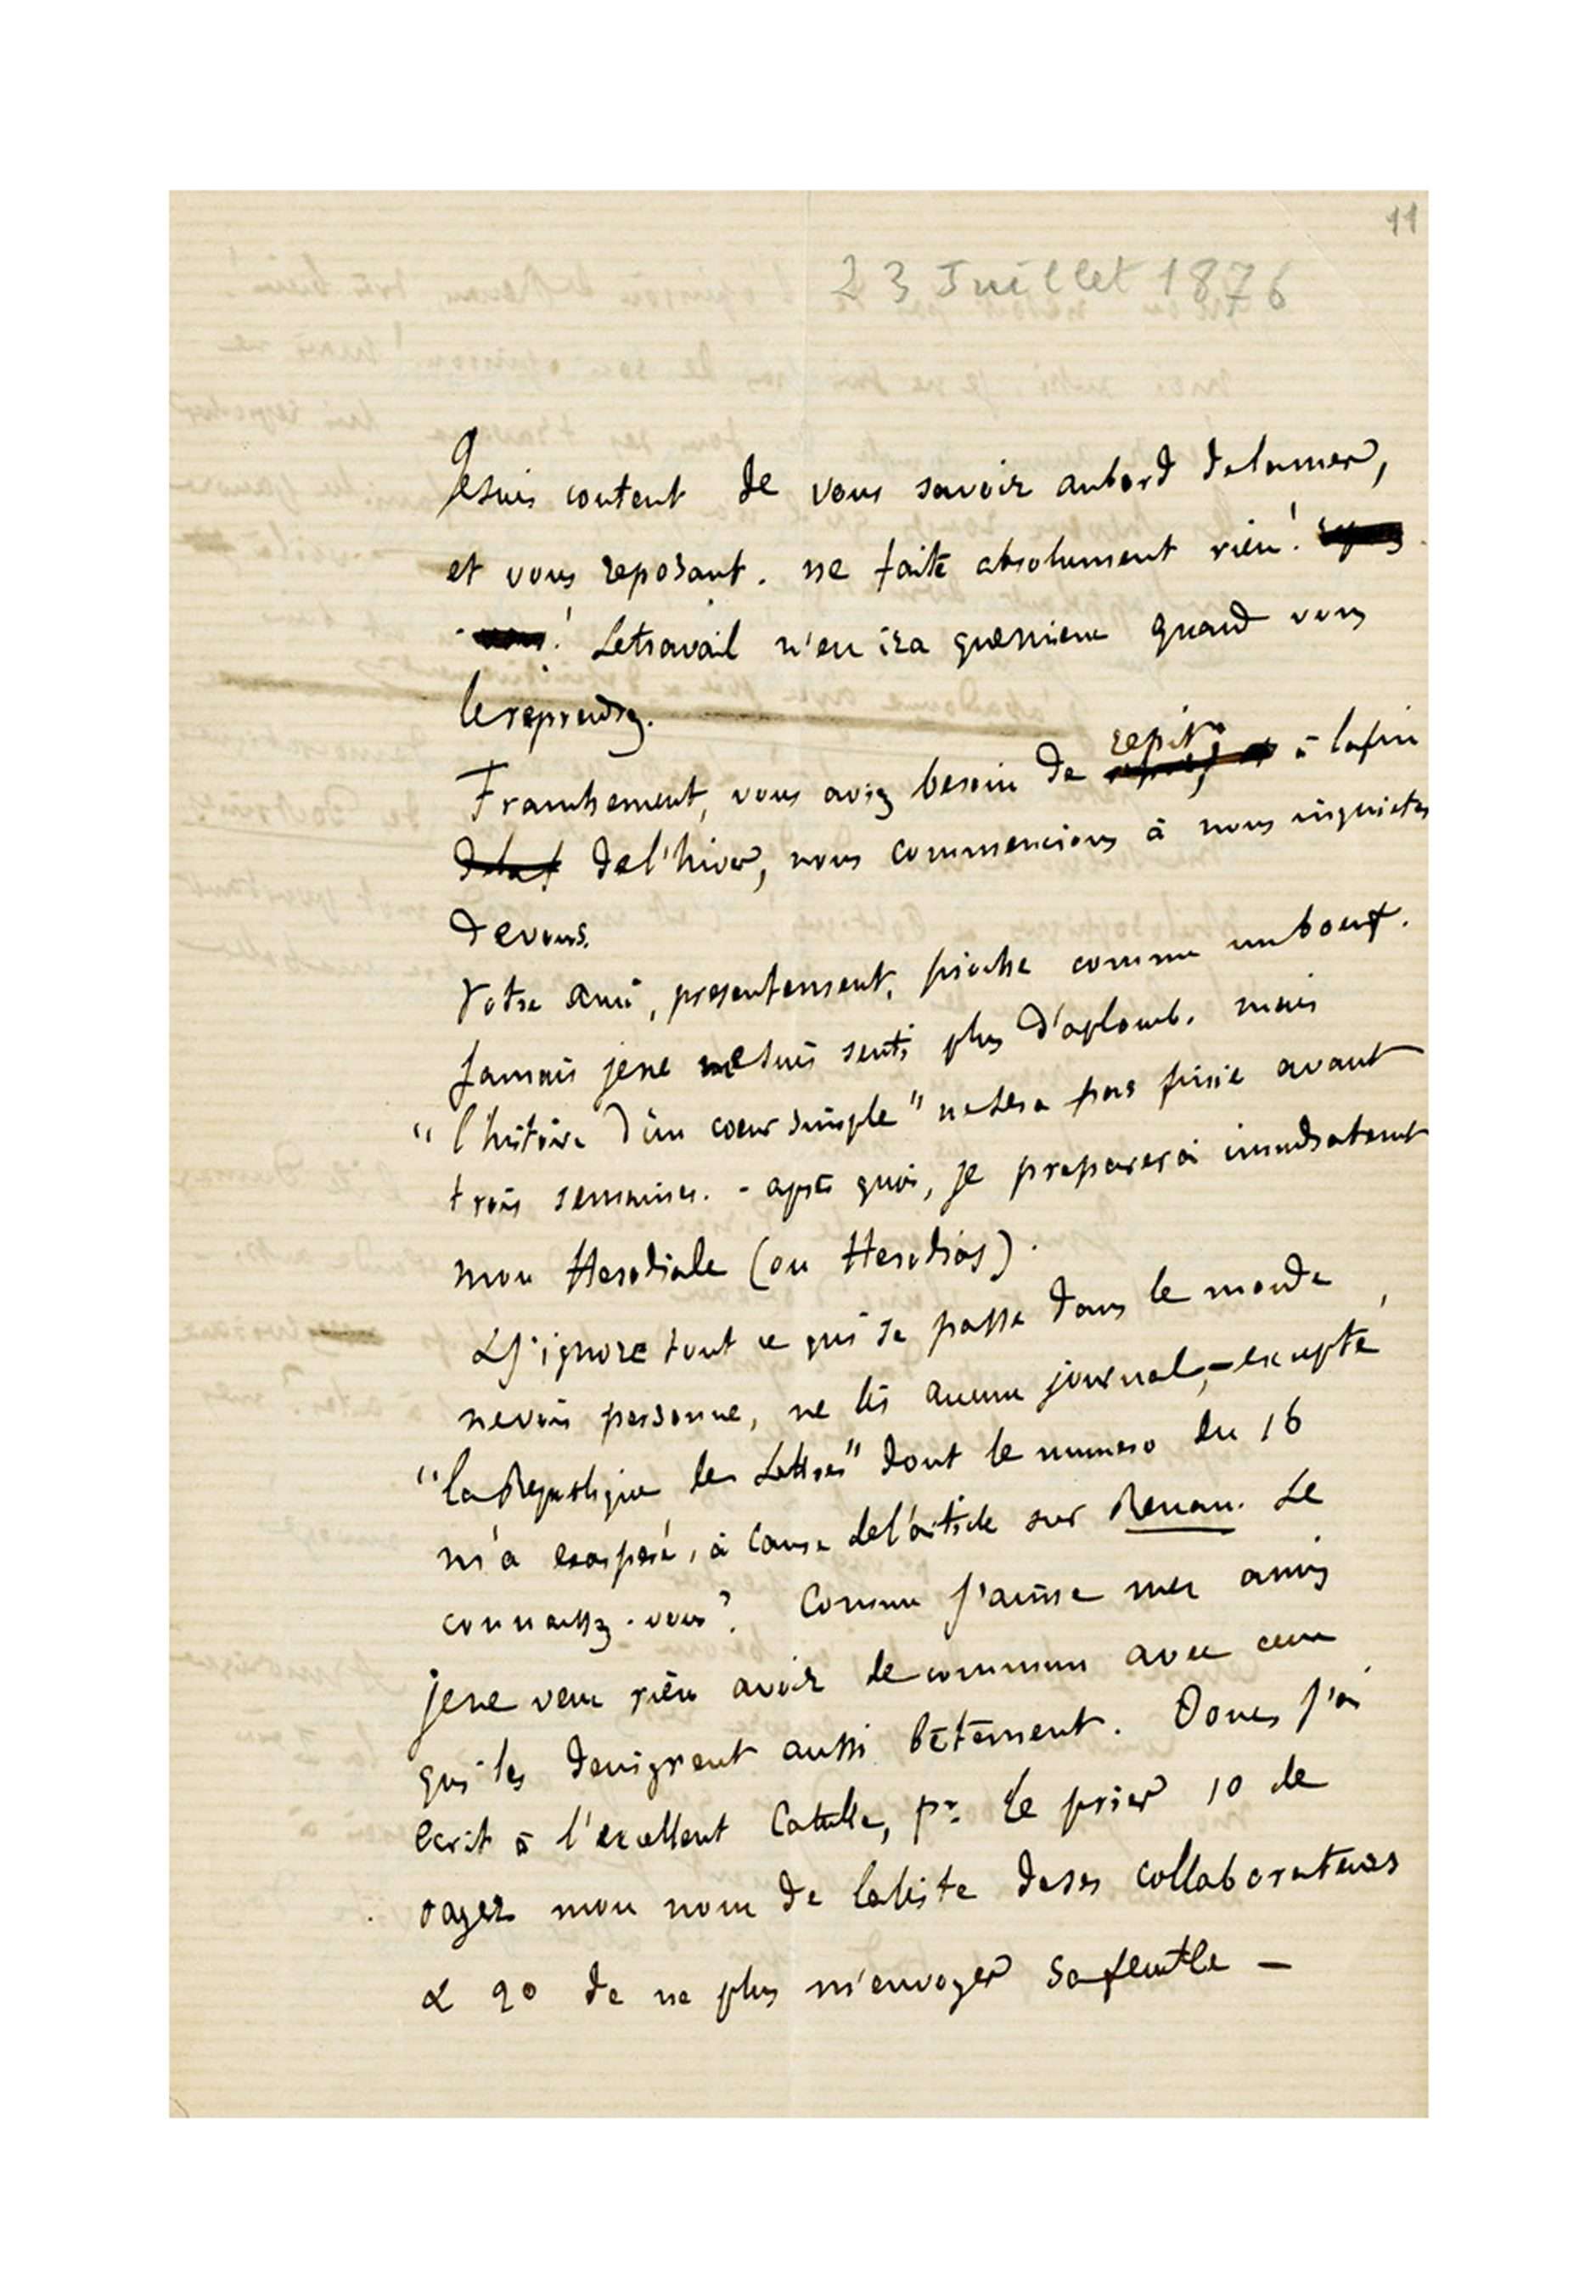 11
23 Juillet 1876
Je suis content de vous savoir au bord de la mer,
et vous reposant. ne faite absolument rien!
Le travail n'en ira que mieux quand vous
le reprendrez.
Franchement, vous aviez besoin de repit à la fin
de l'hiver, nous commencions à nous inquieter
de vous.
Votre ami, presentement, pioche comme un boeuf.
Jamais je ne me suis senti plus d'aplomb. mais
"l'histoire d'un coeur simple" ne sera pas finie avant
trois semaines. - après quoi, je preparerai immediatement
mon Herodiade (ou Herodias).
& J'ignore tout ce qui se passe dans le monde,
ne vois personne, ne lis aucun journal, - excepté
"la Republique des Lettres" dont le numero du 16
m'a exaspéré, à cause de l'article sur Renan. Le
connaissez-vous? Comme j'aime mes amis
je ne veux rien avoir de commun avec ceux
qui les denigrent aussi bêtement. Donc, j'ai
ecrit à l'excellent Catulle, pr le prier 1o de
rayer mon nom de la liste de ses collaborateurs
& 2o de ne plus m'envoyer sa feuille —